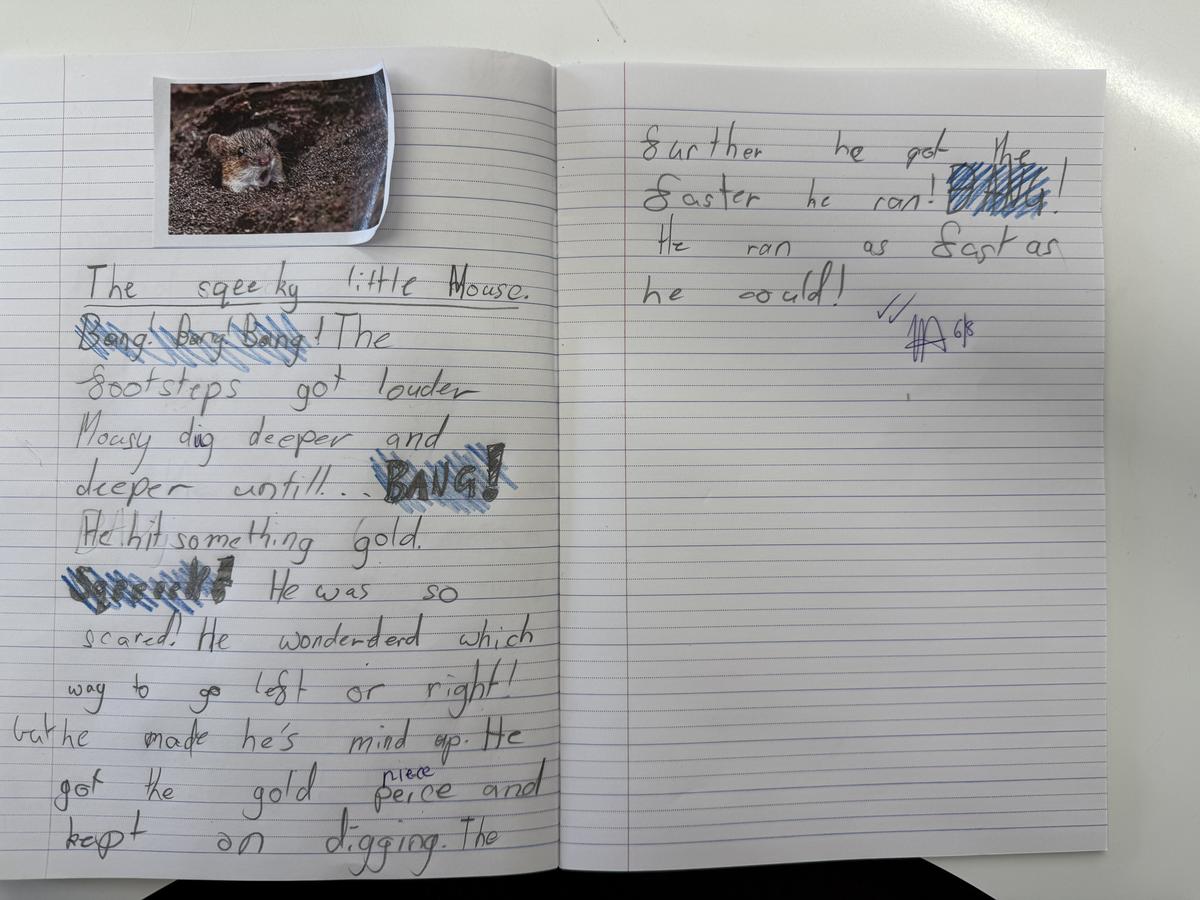 The sqeeky little Mouse.
Bang! Bang! Bang! The
footsteps got louder
Mousy dig deeper and
deeper untill... BANG!
He hit something gold.
Sqeeeek! He was so
scared! He wonderderd which
way to go left or right!
but he made he's mind up. He
got the gold peice and
piece
kept on digging. The
further he got the
faster he ran!
He ran as fast as
he could!
6/8